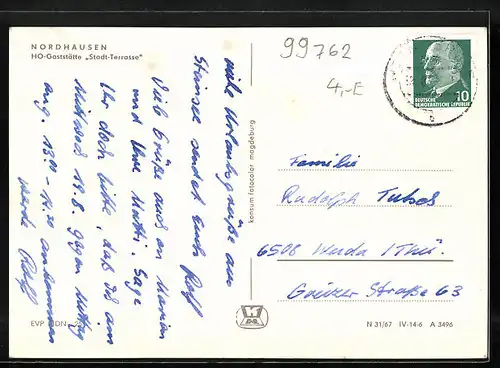 NORDHAUSEN
HO-Gaststätte „Stadt-Terrasse"
viele Urlaubsgrüße aus
sendet Euch Rolf
Viele Grüße auch an Marion
und Uwe Mutti. Sage
Ihr doch bitte, daß ich am
Mittwoch 19.8. gegen Mittag
ankommen
werde Rolf
EVP MDN
konsum fotocolor magdeburg
99762
4,-E
10
DEUTSCHE
DEMOKRATISCHE REPUBLIK
Familie
Rudolph
6508 Weida /Thü.
Straße 63
N 31/67 IV-14-6 A 3496